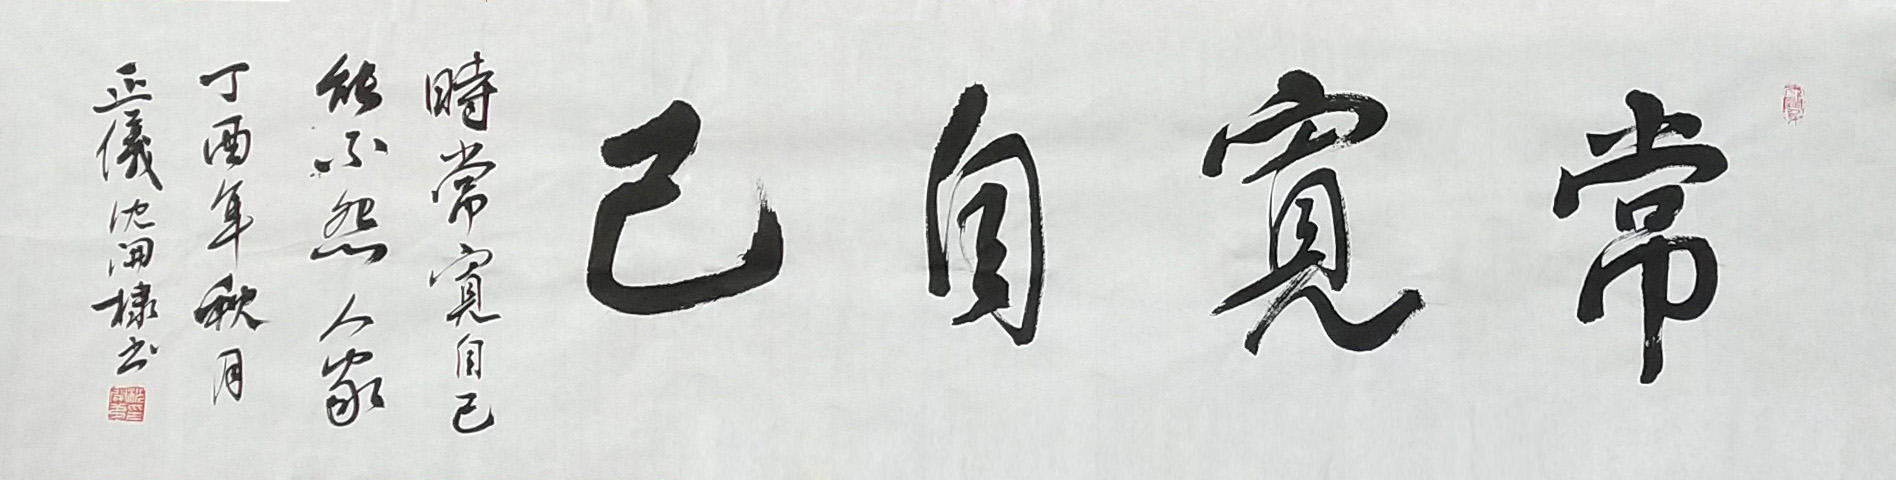 常寬自己
時常寬自己
能不怨人家
丁酉年秋月
正儀沈開棣书